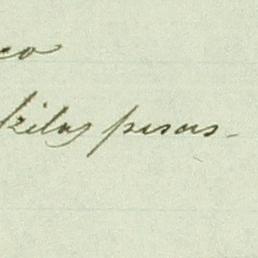 co
kilos pesos-